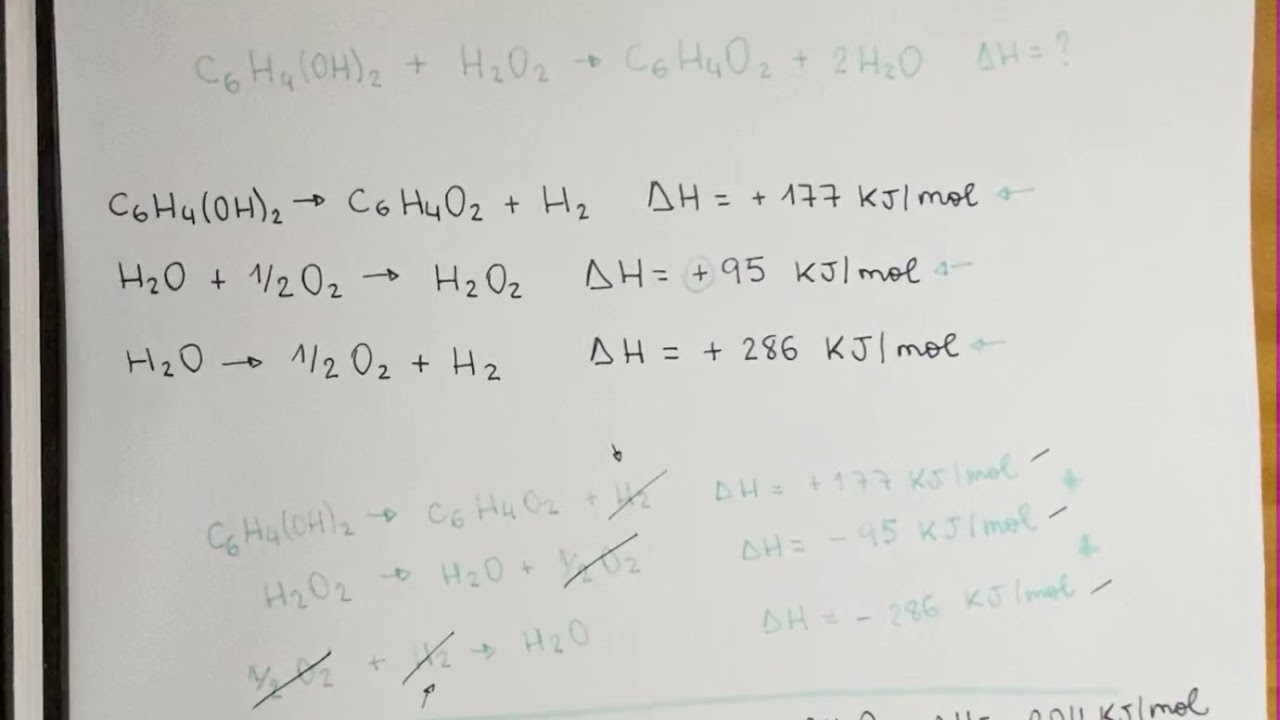 C₆H₄(OH)₂ + H₂O₂ → C₆H₄O₂ + 2H₂O ΔH = ?
C₆H₄(OH)₂ → C₆H₄O₂ + H₂ ΔH = + 177 KJ/mol ←
H₂O + 1/2 O₂ → H₂O₂ ΔH = + 95 KJ/mol ←
H₂O → 1/2 O₂ + H₂ ΔH = + 286 KJ/mol ←
C₆H₄(OH)₂ → C₆H₄O₂ + H₂ ΔH = + 177 KJ/mol
+
H₂O₂ → H₂O + 1/2 O₂ ΔH = - 95 KJ/mol
+
1/2 O₂ + H₂ → H₂O ΔH = - 286 KJ/mol
KJ/mol